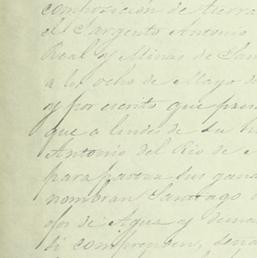 composicion de tierra
el Sargento Antonio
Real y Minas de San
a los ocho de Mayo de
y por escrito que pare
que a lindes de su h
Antonio del Rio de
para pastar sus gana
nombran Santiago
de Agua y demas
si comprenden,